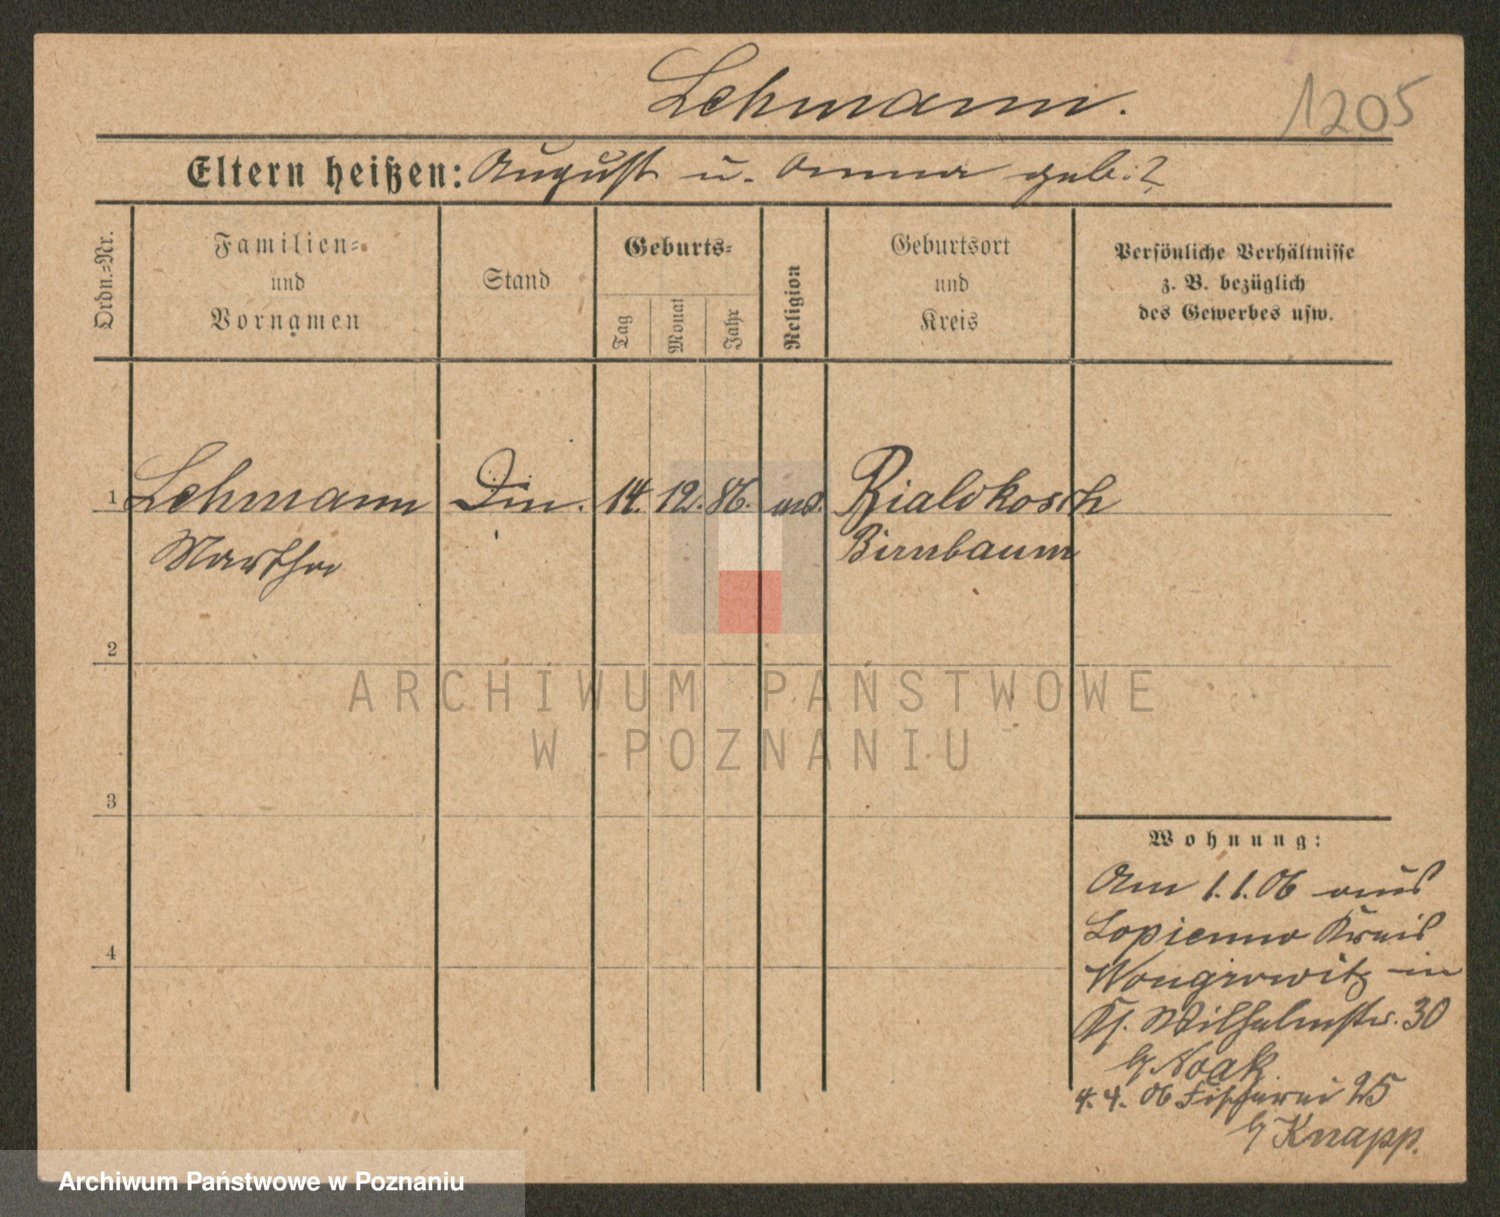 Lehmann.
1205
Eltern heißen: August u. Anna geb: ?
Ordn.=Nr.
Familien=
und
Vornamen
Stand
Geburts=
Tag
Monat
Jahr
Religion
Geburtsort
und
Kreis
Persönliche Verhältnisse
z. B. bezüglich
des Gewerbes usw.
1 Lehmann Din. 14. 12. 86. Bialokosch
Martha Birnbaum
2
ARCHIWUM PAŃSTWOWE
W POZNANIU
3
Wohnung:
Am 1.1.06 aus
Lopienno Kreis
4
Wongrowitz in
Kl. Wilhelmstr. 30
b/ Noak.
4. 4. 06 Fischerei 25
b/ Knapp.
Archiwum Państwowe w Poznaniu